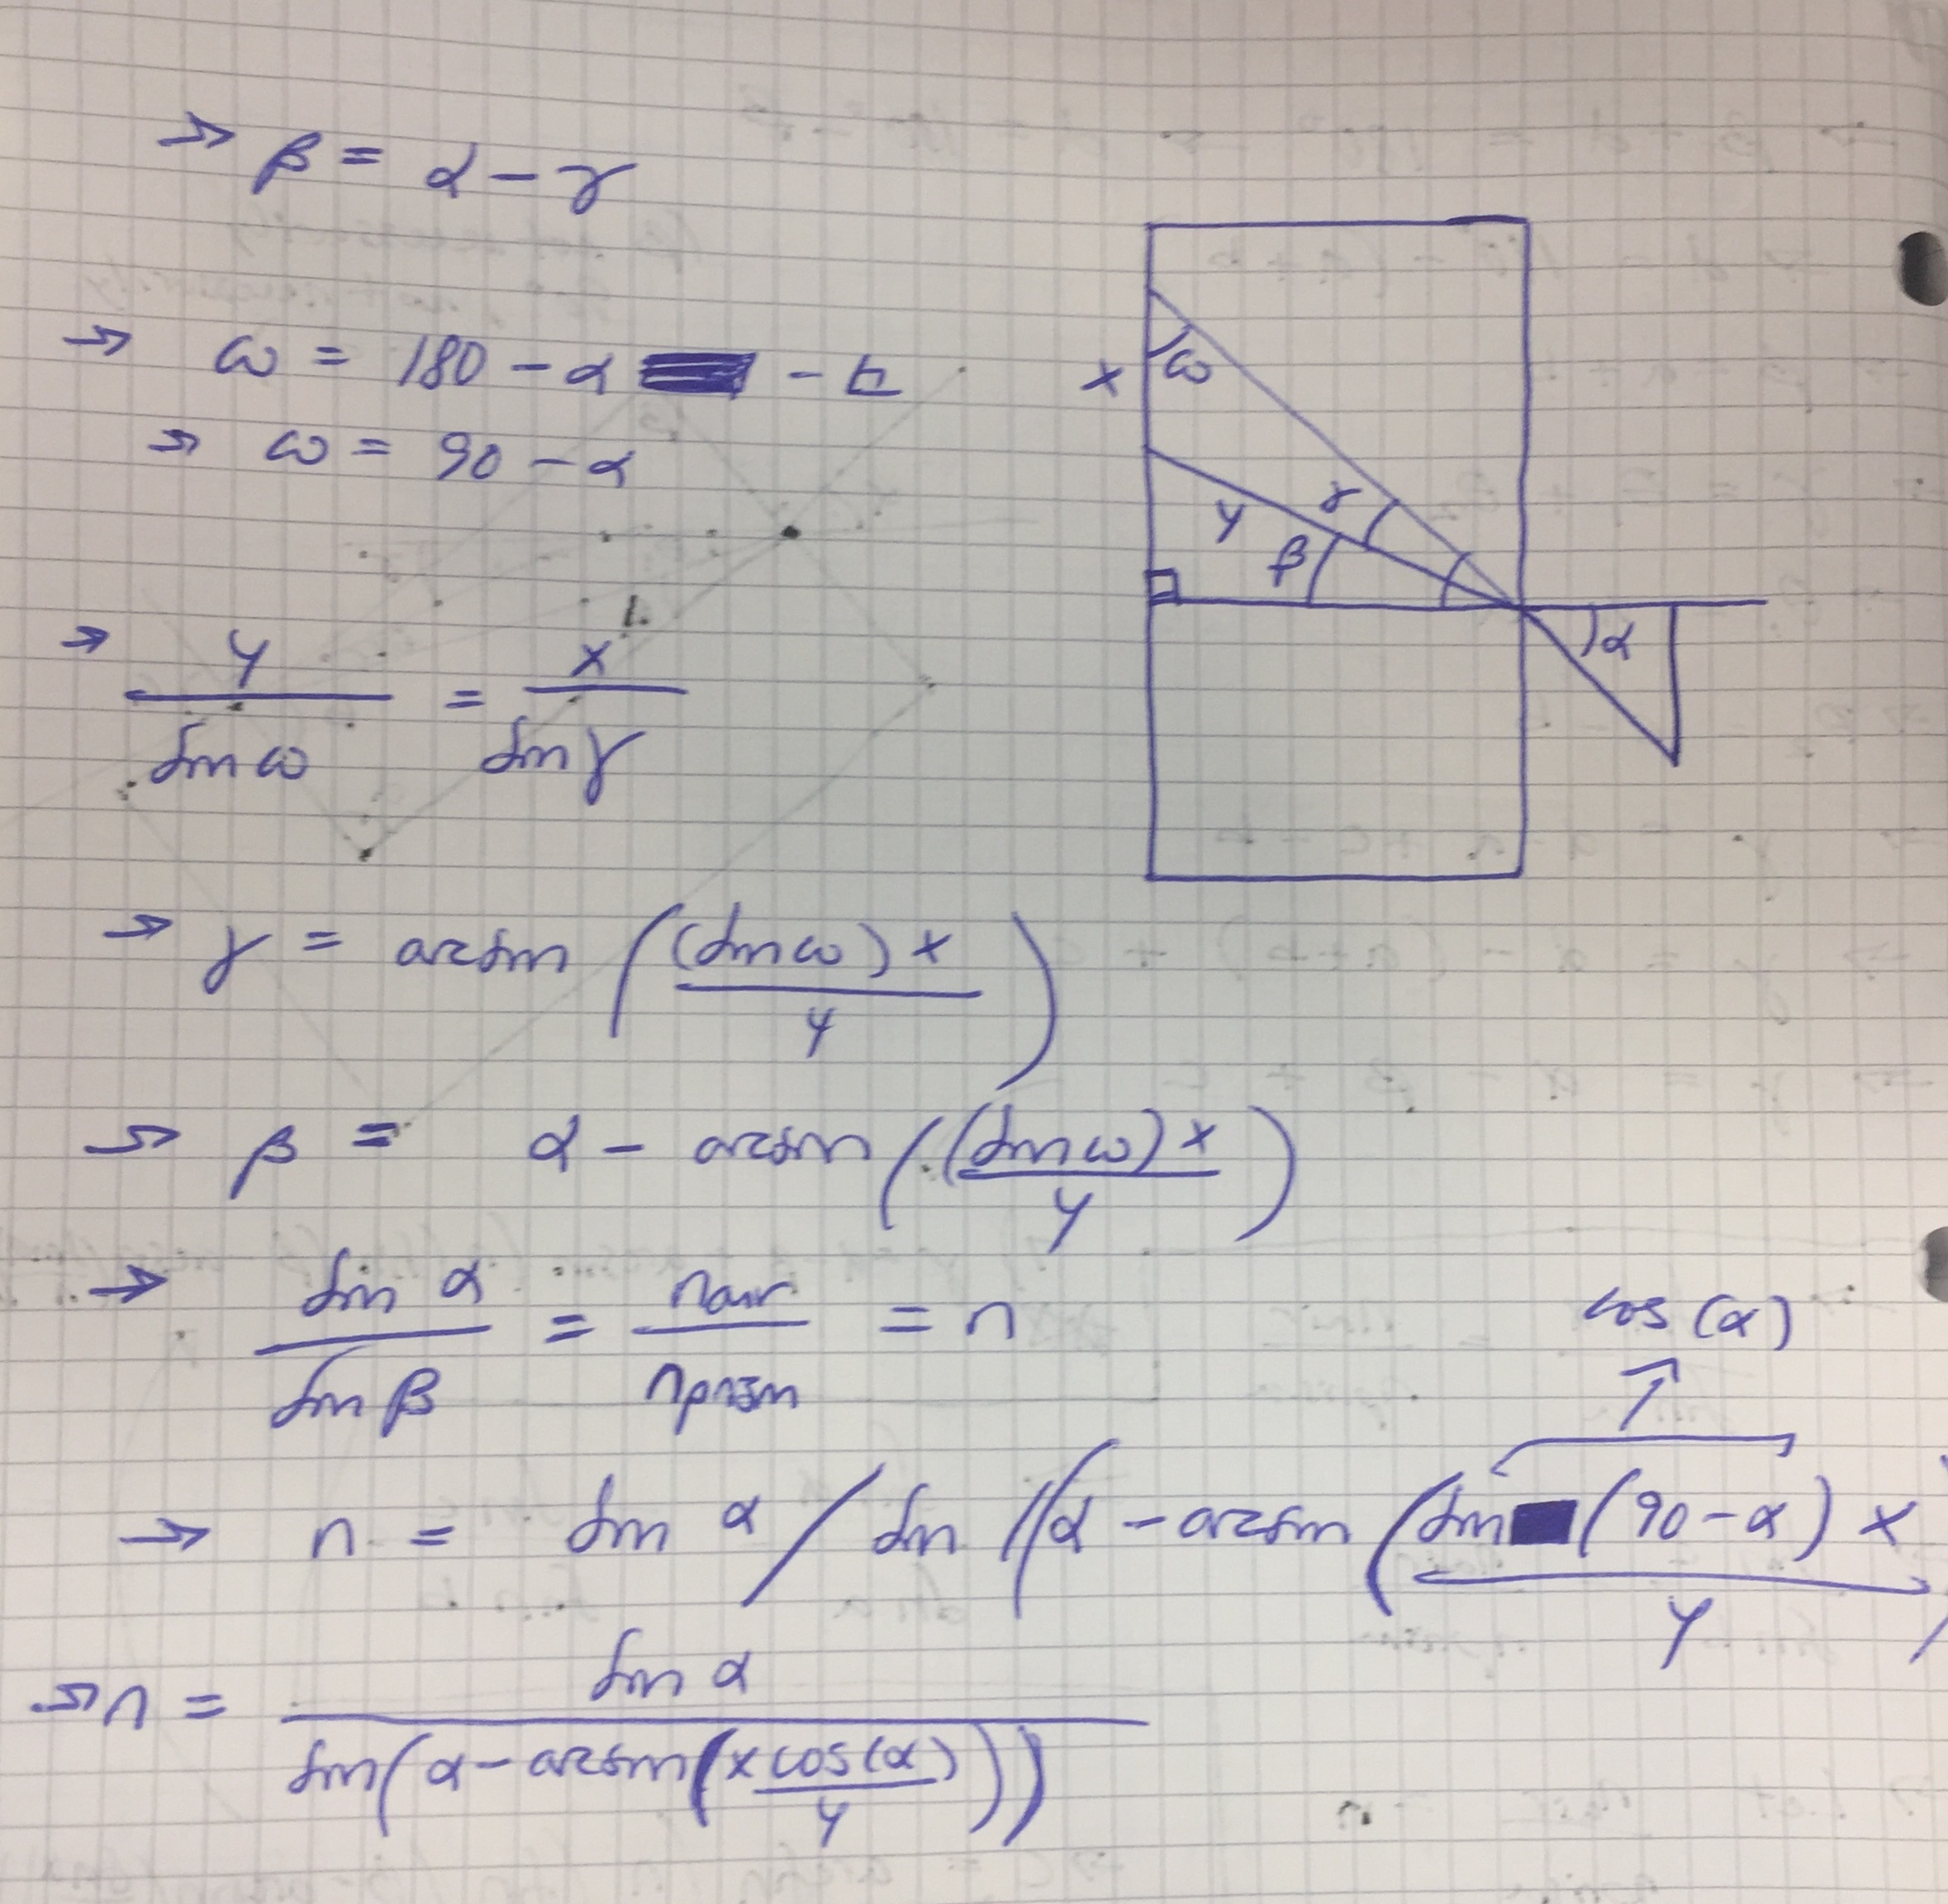 → β = α − γ
→ ω = 180 − α − ⊾
→ ω = 90 − α
→ y / sin ω = x / sin γ
→ γ = arcsin ( (sin ω) x / y )
→ β = α − arcsin ( (sin ω) x / y )
→ sin α / sin β = n air / n prism = n
cos (α)
→ n = sin α / sin ( ( α − arcsin ( sin (90 − α) x / y )
→ n = sin α / sin ( α − arcsin ( x cos(α) / y ) )
x
ω
γ
y
β
α